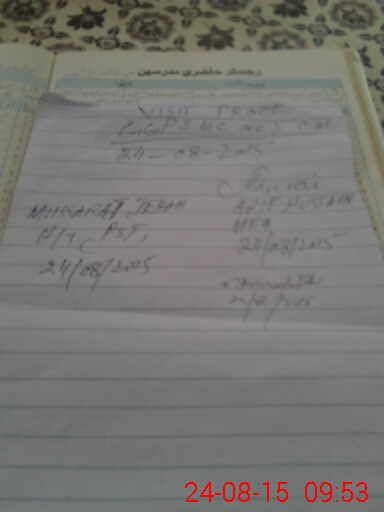 رجسٹر حاضری مدرسین
VISIT PROOF
G.G.P.S MC NO
24-08-2015
MUSSARAT JEHAN
H/T, PST,
24/08/2015
ARIF HUSSAIN
MEA
24/08/2015
24-08-15 09:53